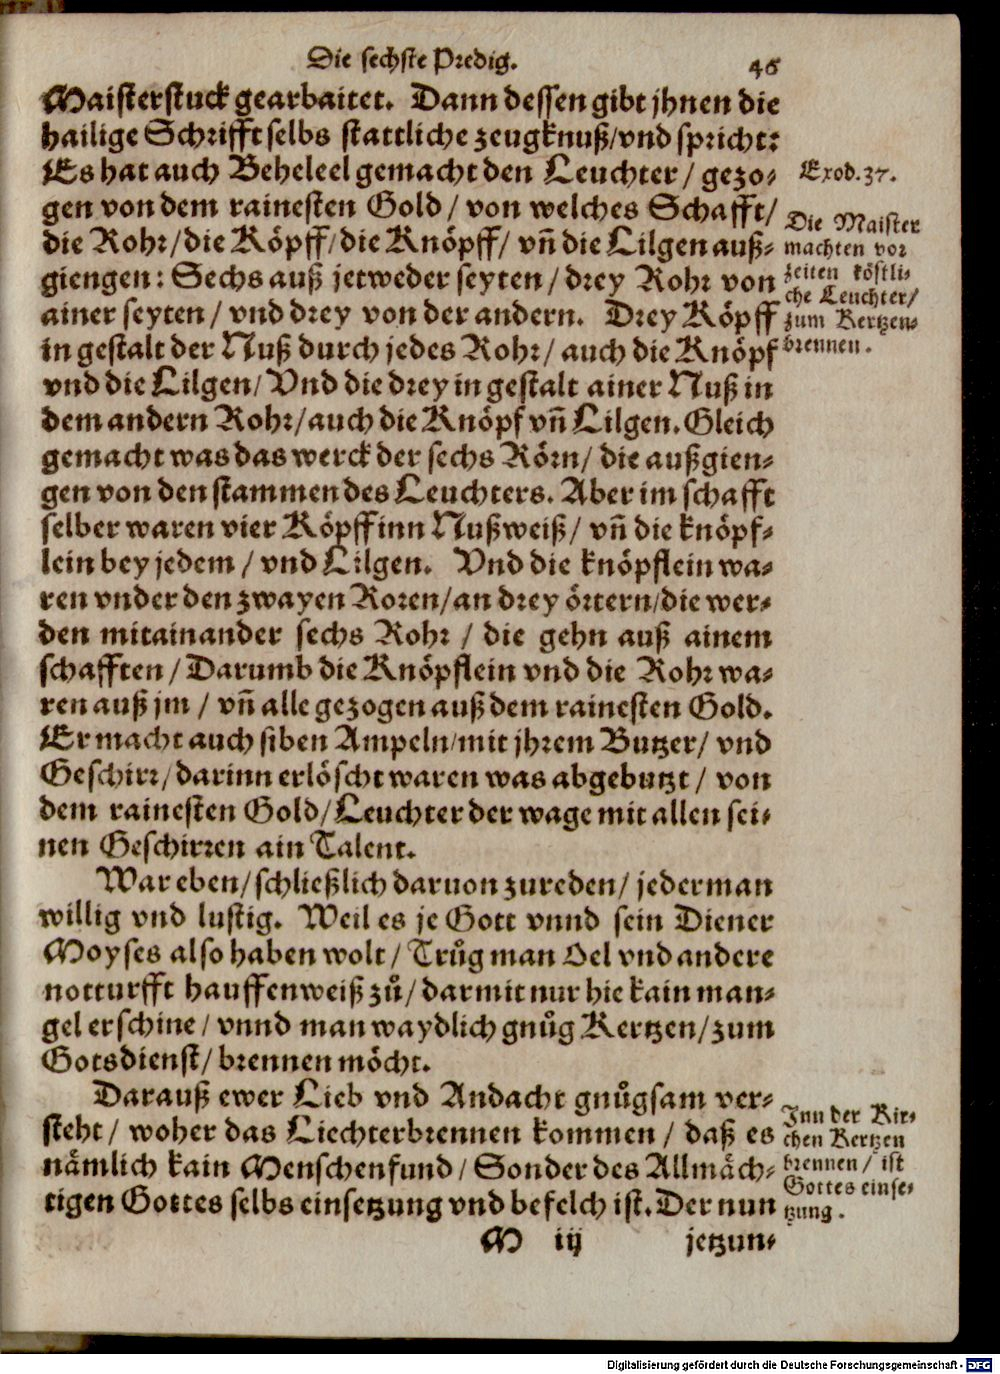 Die sechste Predig.
46
Maisterstuck gearbaitet. Dann dessen gibt jhnen die
hailige Schrifft selbs stattliche zeugknuß/vnd spricht:
Es hat auch Beheleel gemacht den Leuchter / gezo-
gen von dem rainesten Gold / von welches Schafft/
die Rohr/die Köpff/die Knöpff/ vñ die Lilgen auß-
giengen: Sechs auß jetweder seyten / drey Rohr von
ainer seyten / vnd drey von der andern. Drey Köpff
in gestalt der Nuß durch jedes Rohr/ auch die Knöpf
vnd die Lilgen/ Vnd die drey in gestalt ainer Nuß in
dem andern Rohr/auch die Knöpf vñ Lilgen. Gleich
gemacht was das werck der sechs Rörn/ die außgien-
gen von den stammen des Leuchters. Aber im schafft
selber waren vier Köpff inn Nußweiß/ vñ die knöpf-
lein bey jedem / vnd Lilgen. Vnd die knöpflein wa-
ren vnder den zwayen Roren/an drey örtern/die wer-
den mitainander sechs Rohr / die gehn auß ainem
schafften / Darumb die Knöpflein vnd die Rohr wa-
ren auß jm / vñ alle gezogen auß dem rainesten Gold.
Er macht auch siben Ampeln/mit jhrem Butzer/ vnd
Geschirr/darinn erlöscht waren was abgebutzt / von
dem rainesten Gold/Leuchter der wage mit allen sei-
nen Geschirren ain Talent.
War eben/schließlich daruon zureden/ jederman
willig vnd lustig. Weil es je Gott vnnd sein Diener
Moyses also haben wolt/ Trůg man Oel vnd andere
notturfft hauffenweiß zů/ darmit nur hie kain man-
gel erschine / vnnd man waydlich gnůg Kertzen/zum
Gotsdienst/ brennen möcht.
Darauß ewer Lieb vnd Andacht gnůgsam ver-
steht / woher das Liechterbrennen kommen / daß es
nämlich kain Menschenfund/ Sonder des Allmäch-
tigen Gottes selbs einsetzung vnd befelch ist. Der nun
M iij
jetzun-
Exod.37.
Die Maister
machten vor
zeiten köstli-
che Leuchter/
zum Kertzen-
brennen.
Inn der Kir-
chen Kertzen
brennen/ ist
Gottes einse-
tzung.
Digitalisierung gefördert durch die Deutsche Forschungsgemeinschaft - DFG